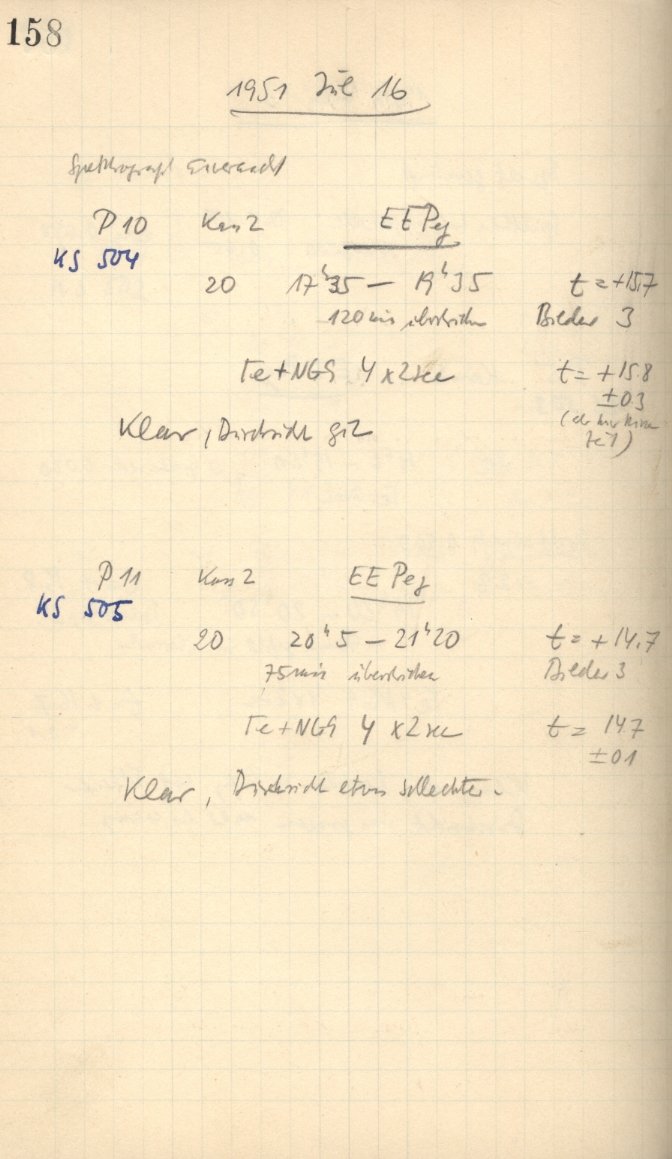 158
1951 Jul 16
Spektrograph
P 10 Kass 2 EE Peg
KS 504
20 17ʰ35 — 19ʰ35 t = +15.7
120 min überstrichen Bilder 3
Fe+NGS 4 x 2 sec t = +15.8
±0.3
Klar, Durchsicht gut
P 11 Kass 2 EE Peg
KS 505
20 20ʰ5 — 21ʰ20 t = +14.7
75 min überstrichen Bilder 3
Fe+NGS 4 x 2 sec t = 14.7
±0.1
Klar, Durchsicht etwas schlechter.